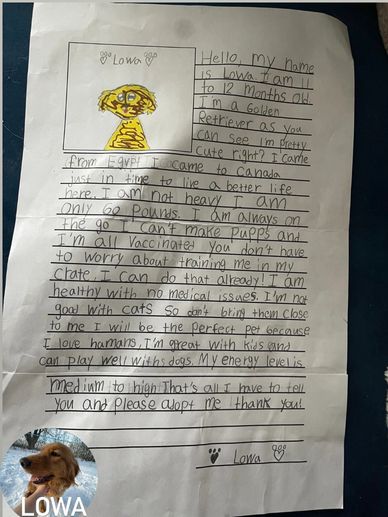 Lowa
Hello, my name
is Lowa. I am 11
to 12 months old.
I'm a Golden
Retriever as you
can see im pretty
cute right? I came
from Egypt I came to Canada
just in time to live a better life
here. I am not heavy I am
only 60 Pounds. I am always on
the go I can't make pupps and
I'm all Vaccinated you don't have
to worry about training me in my
Crate, I can do that already! I am
healthy with no medical issues. I'm not
good with cats so don't bring them close
to me I will be the perfect pet because
I love hamans, I'm great with kids and
can play well withs dogs. My energy level is
medium to high That's all I have to tell
you and please adopt me thank you!
Lowa
LOWA